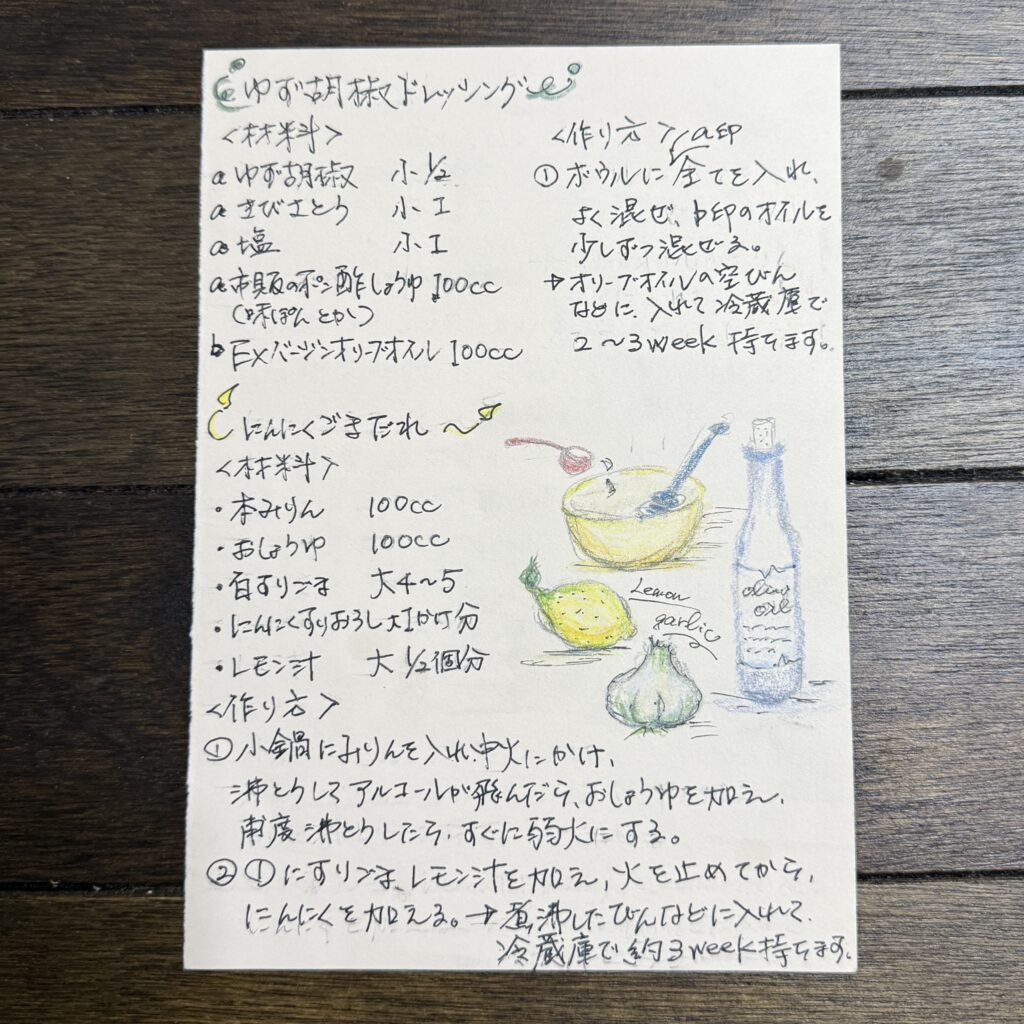 ゆず胡椒ドレッシング
<材料>
a ゆず胡椒 小 1/2
a きびさとう 小 1
a 塩 小 1
a 市販のポン酢しょうゆ 100cc
(味ぽんとか)
b EXバージンオリーブオイル 100cc
<作り方>
a印
① ボウルに全てを入れ、
よく混ぜ、b印のオイルを
少しずつ混ぜる。
→ オリーブオイルの空びん
などに、入れて冷蔵庫で
2～3week 持ちます。
にんにくごまだれ ～
<材料>
・本みりん 100cc
・おしょうゆ 100cc
・白すりごま 大4～5
・にんにくすりおろし 大1かけ分
・レモン汁 大 1/2個分
Lemon
garlic
olive
oil
<作り方>
① 小鍋にみりんを入れ、中火にかけ、
沸とうしてアルコールが飛んだら、おしょうゆを加え、
再度沸とうしたら、すぐに弱火にする。
② ①にすりごま、レモン汁を加え、火を止めてから、
にんにくを加える。→ 煮沸したびんなどに入れて、
冷蔵庫で約3week持ちます。